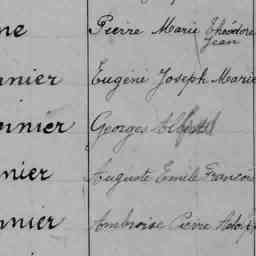 ne Pierre Marie Théodore
Jean
nnier Eugène Joseph Marie
onnier Georges Alfred
nier Auguste Emile François
nnier Ambroise Pierre